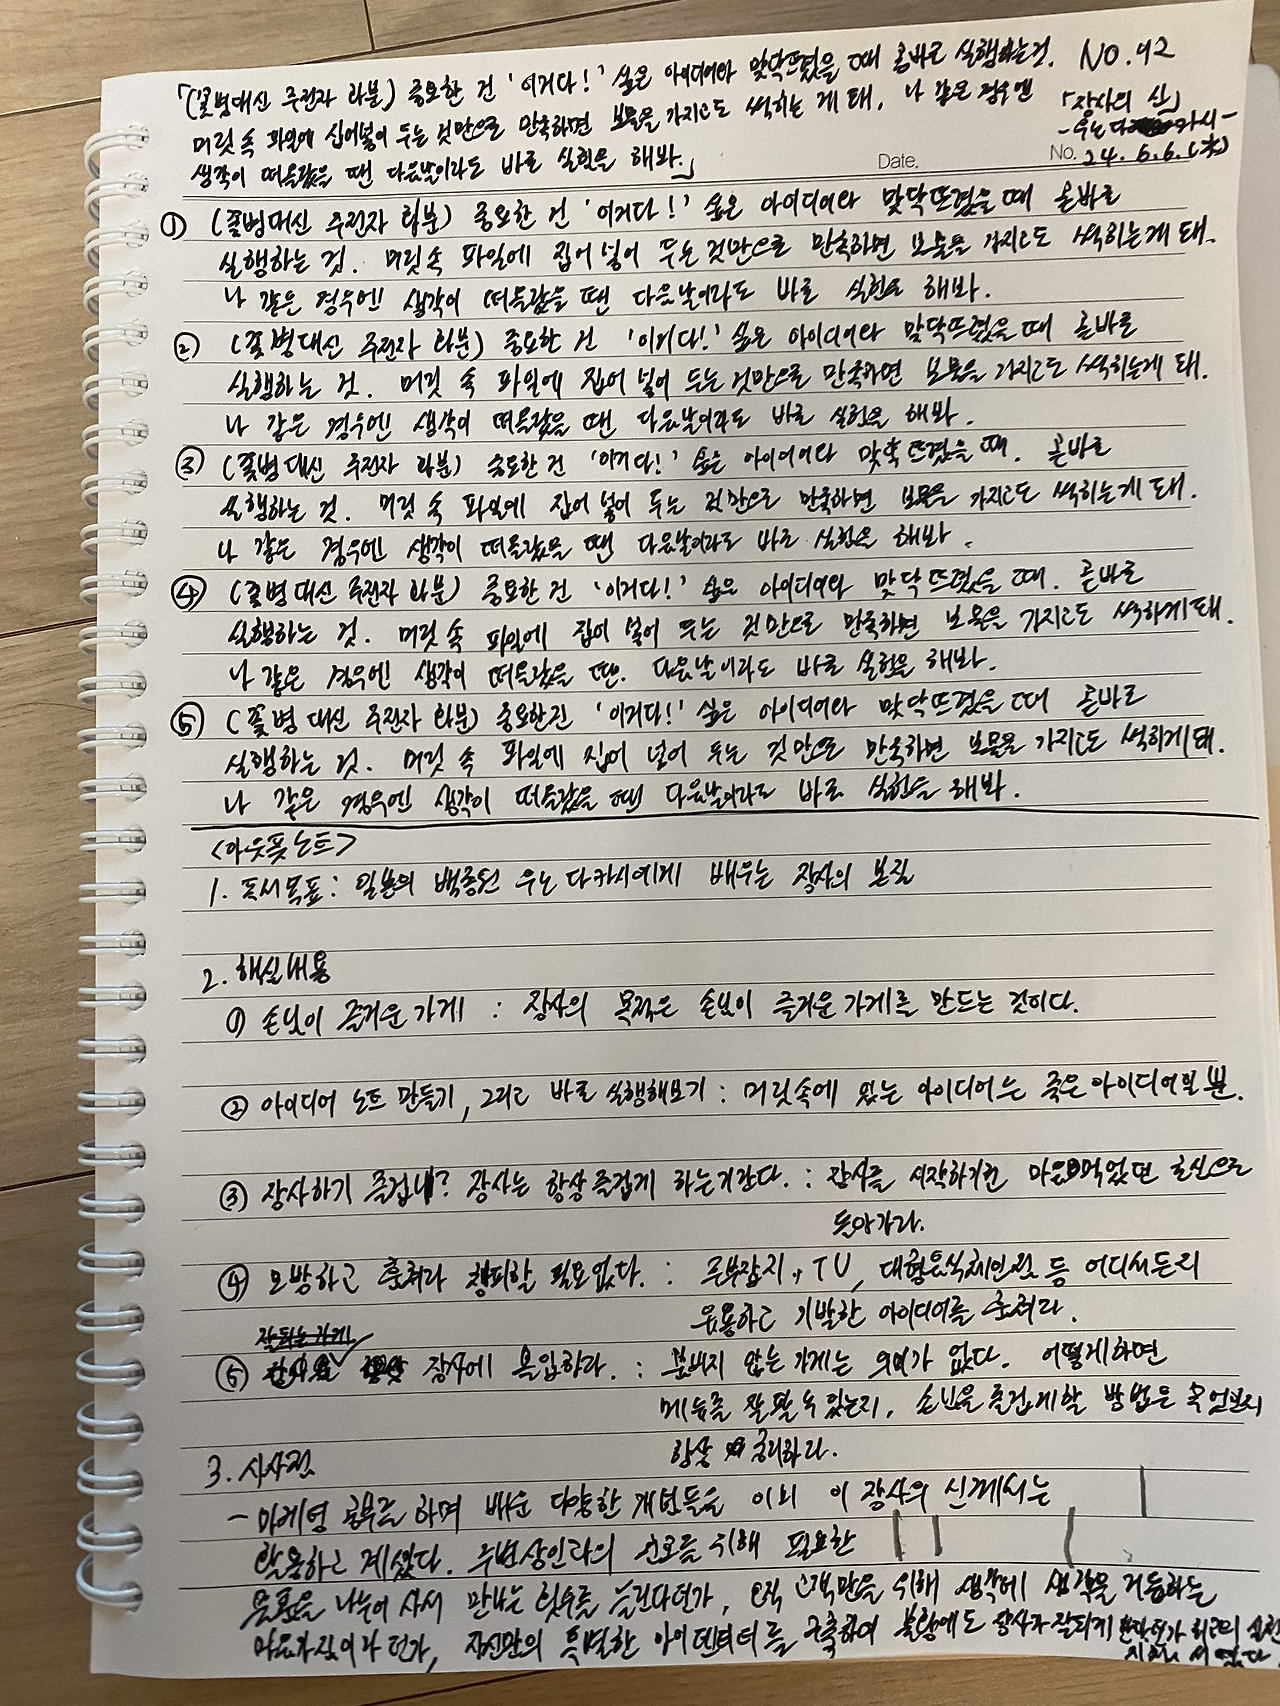 「(꽃병대신 주전자 화분) 중요한 건 '이거다!' 싶은 아이디어와 맞닥뜨렸을 때 곧바로 실행하는것. NO.42
머릿 속 파일에 집어넣어 두는 것만으로 만족하면 보물을 가지고도 썩히는 게 돼. 나 같은 경우엔 「장사의 신」
생각이 떠올랐을 땐 다음날이라도 바로 실험을 해봐.」 -우노 다카시-
Date. No. 24. 6. 6. (木)
① (꽃병대신 주전자 화분) 중요한 건 '이거다!' 싶은 아이디어와 맞닥뜨렸을 때 곧바로
실행하는 것. 머릿 속 파일에 집어 넣어 두는 것만으로 만족하면 보물을 가지고도 썩히는게 돼.
나 같은 경우엔 생각이 떠올랐을 땐 다음날이라도 바로 실험을 해봐.
② (꽃병대신 주전자 화분) 중요한 건 '이거다!' 싶은 아이디어와 맞닥뜨렸을 때 곧바로
실행하는 것. 머릿 속 파일에 집어 넣어 두는 것만으로 만족하면 보물을 가지고도 썩히는게 돼.
나 같은 경우엔 생각이 떠올랐을 땐 다음날이라도 바로 실험을 해봐.
③ (꽃병 대신 주전자 화분) 중요한 건 '이거다!' 싶은 아이디어와 맞닥뜨렸을 때. 곧바로
실행하는 것. 머릿 속 파일에 집어 넣어 두는 것만으로 만족하면 보물을 가지고도 썩히는게 돼.
나 같은 경우엔 생각이 떠올랐을 땐 다음날이라도 바로 실험을 해봐.
④ (꽃병 대신 주전자 화분) 중요한 건 '이거다!' 싶은 아이디어와 맞닥뜨렸을 때. 곧바로
실행하는 것. 머릿 속 파일에 집어 넣어 두는 것만으로 만족하면 보물을 가지고도 썩하게 돼.
나 같은 경우엔 생각이 떠올랐을 땐. 다음날이라도 바로 실험을 해봐.
⑤ (꽃병 대신 주전자 화분) 중요한건 '이거다!' 싶은 아이디어와 맞닥뜨렸을 때 곧바로
실행하는 것. 머릿 속 파일에 집어 넣어 두는 것만으로 만족하면 보물을 가지고도 썩히게 돼.
나 같은 경우엔 생각이 떠올랐을 땐 다음날이라도 바로 실험을 해봐.
<아웃풋노트>
1. 독서목표: 일본의 백종원 우노 다카시에게 배우는 장사의 본질
2. 핵심내용
① 손님이 즐거운 가게 : 장사의 목적은 손님이 즐거운 가게를 만드는 것이다.
② 아이디어 노트 만들기, 그리고 바로 실행해보기 : 머릿속에 있는 아이디어는 죽은 아이디어일 뿐.
③ 장사하기 즐겁니? 장사는 항상 즐겁게 하는거란다. : 장사를 시작하기전 마음먹었던 초심으로
돌아가라.
④ 모방하고 훔쳐라 창피할 필요없다. : 주부잡지, TV, 대형음식체인점 등 어디서든지
유용하고 기발한 아이디어를 훔쳐라.
잘되는 가게
⑤ 장사에 몰입하라. : 붐비지 않는 가게는 의미가 없다. 어떻게하면
메뉴를 잘 팔 수 있는지, 손님을 즐겁게할 방법은 무엇인지
항상 궁리하라.
3. 시사점
- 마케팅 공부를 하며 배운 다양한 개념들을 이미 이 장사의 신께서는
활용하고 계셨다. 주변상인과의 를 위해 필요한
을 나누어 사서 만나는 횟수를 늘린다던가, 오직 고객만을 위해 생각에 생각을 거듭하는
마음가짐이라 던가, 자신만의 특별한 아이덴티티를 구축하여 불황에도 장사가 잘되게